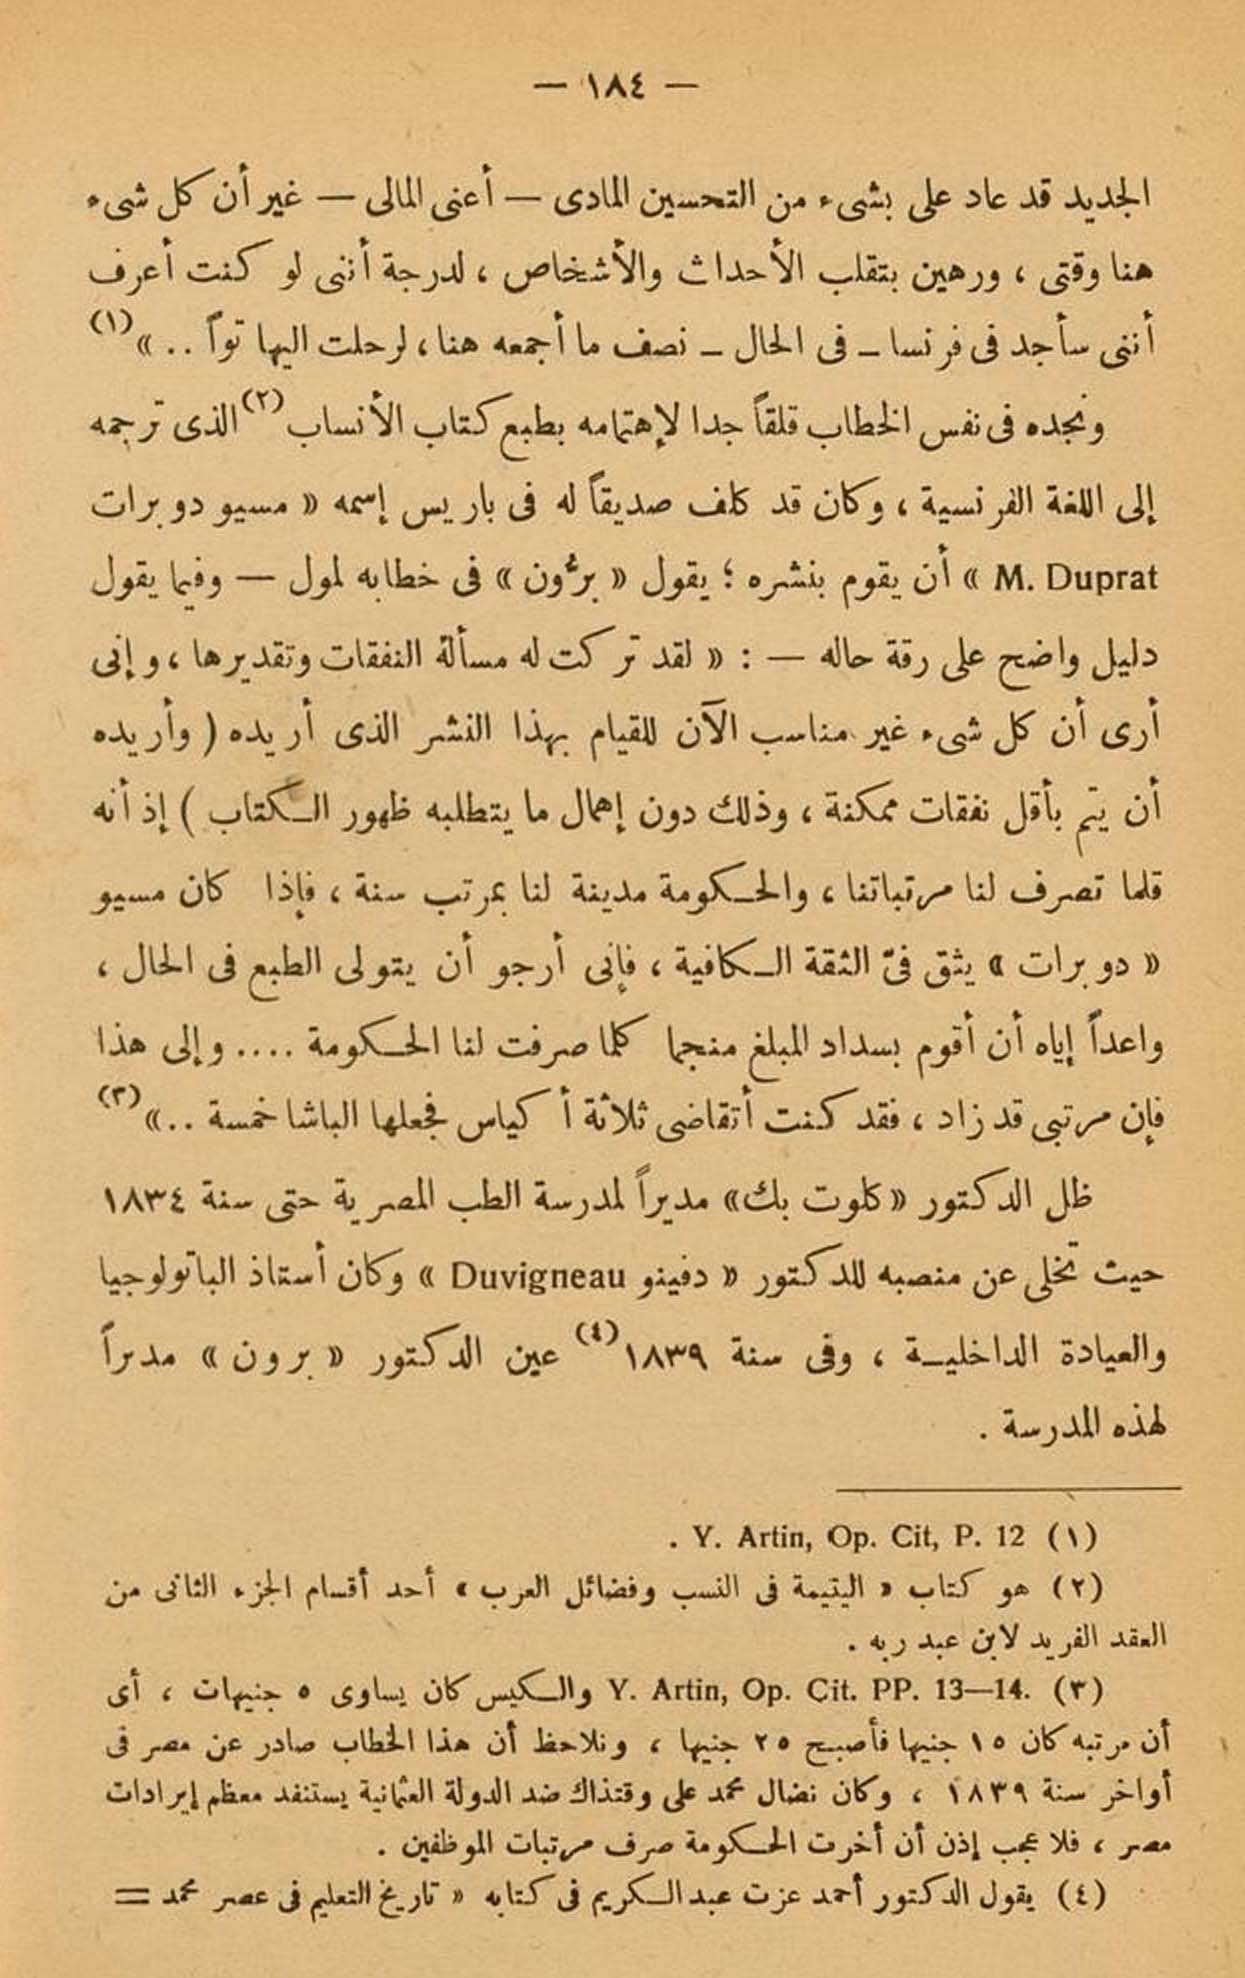 — ١٨٤ —
الجديد قد عاد على بشىء من التحسين المادى — أعنى المالى — غير أن كل شىء
هنا وقتى ، ورهين بتقلب الأحداث والأشخاص ، لدرجة أننى لو كنت أعرف
أننى سأجد فى فرنسا ــ فى الحال ــ نصف ما أجمعه هنا ، لرحلت اليها تواً .. » (١)
ونجده فى نفس الخطاب قلقاً جدا لإهتمامه بطبع كتاب الأنساب (٢) الذى ترجمه
إلى اللغة الفرنسية ، وكان قد كلف صديقاً له فى باريس إسمه « مسيو دوبرات
M. Duprat » أن يقوم بنشره ؛ يقول « برُّون » فى خطابه لمول — وفيما يقول
دليل واضح على رقة حاله — : « لقد تركت له مسألة النفقات وتقديرها ، وإنى
أرى أن كل شىء غير مناسب الآن للقيام بهذا النشر الذى أريده ( وأريده
أن يتم بأقل نفقات ممكنة ، وذلك دون إهمال ما يتطلبه ظهور الكتاب ) إذ أنه
قلما تصرف لنا مرتباتنا ، والحكومة مدينة لنا بمرتب سنة ، فإذا كان مسيو
« دوبرات » يثق فىّ الثقة الكافية ، فإنى أرجو أن يتولى الطبع فى الحال ،
واعداً إياه أن أقوم بسداد المبلغ منجما كلما صرفت لنا الحكومة .... وإلى هذا
فإن مرتبى قد زاد ، فقد كنت أتقاضى ثلاثة أكياس فجعلها الباشا خمسة .. » (٣)
ظل الدكتور « كلوت بك » مديراً لمدرسة الطب المصرية حتى سنة ١٨٣٤
حيث تخلى عن منصبه للدكتور « دفينو Duvigneau » وكان أستاذ الباتولوجيا
والعيادة الداخليـة ، وفى سنة ١٨٣٩ (٤) عين الدكتور « برون » مديراً
لهذه المدرسة .
(١) Y. Artin, Op. Cit, P. 12 .
(٢) هو كتاب « اليتيمة فى النسب وفضائل العرب » أحد أقسام الجزء الثانى من
العقد الفريد لابن عبد ربه .
(٣) Y. Artin, Op. Cit. PP. 13—14. والكيس كان يساوى ٥ جنيهات ، أى
أن مرتبه كان ١٥ جنيها فأصبح ٢٥ جنيها ، ونلاحظ أن هذا الخطاب صادر عن مصر فى
أواخر سنة ١٨٣٩ ، وكان نضال محمد على وقتذاك ضد الدولة العثمانية يستنفد معظم إيرادات
مصر ، فلا عجب إذن أن أخرت الحكومة صرف مرتبات الموظفين .
(٤) يقول الدكتور أحمد عزت عبد الكريم فى كتابه « تاريخ التعليم فى عصر محمد =